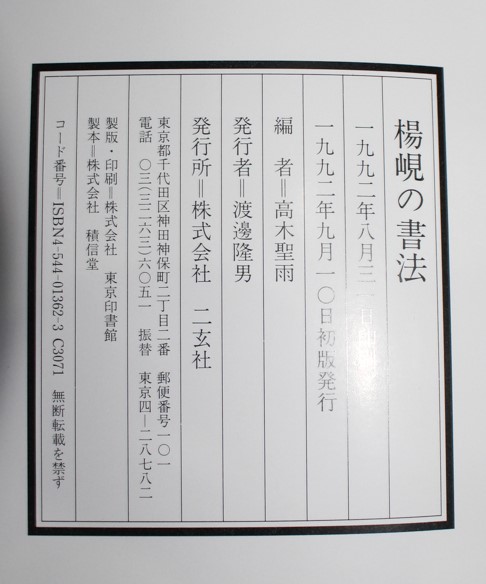 楊峴の書法
一九九二年八月三一日印刷
一九九二年九月一〇日初版発行
編　者＝高木聖雨
発行者＝渡邊隆男
発行所＝株式会社　二玄社
東京都千代田区神田神保町二丁目二番　郵便番号一〇一
電話　〇三(三二六三)六〇五一　振替　東京四―二八七八二
製版・印刷＝株式会社　東京印書館
製本＝株式会社　積信堂
コード番号＝ISBN4-544-01362-3 C3071　無断転載を禁ず